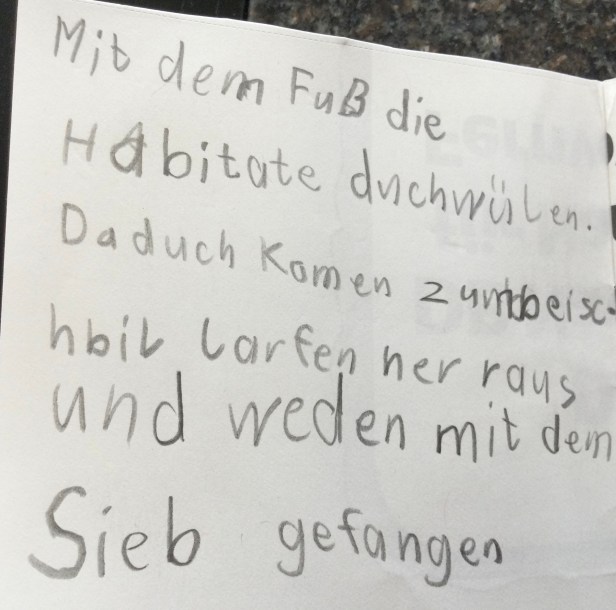 Mit dem Fuß die
Habitate duchwülen.
Daduch komen zumbeisc-
hbil larfen her raus
und weden mit dem
Sieb gefangen